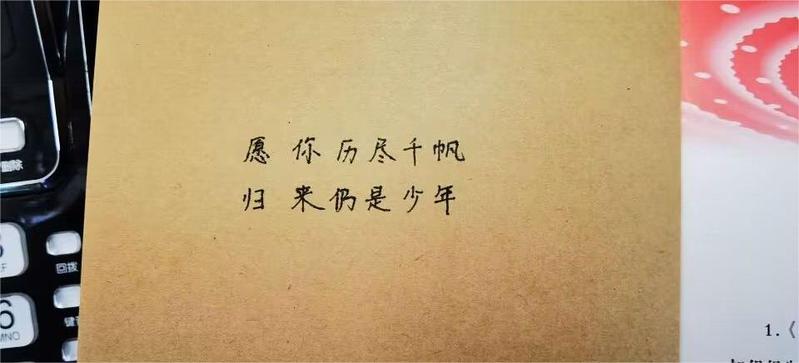 愿你历尽千帆
归来仍是少年
删除
回拨
6
MNO
1.《